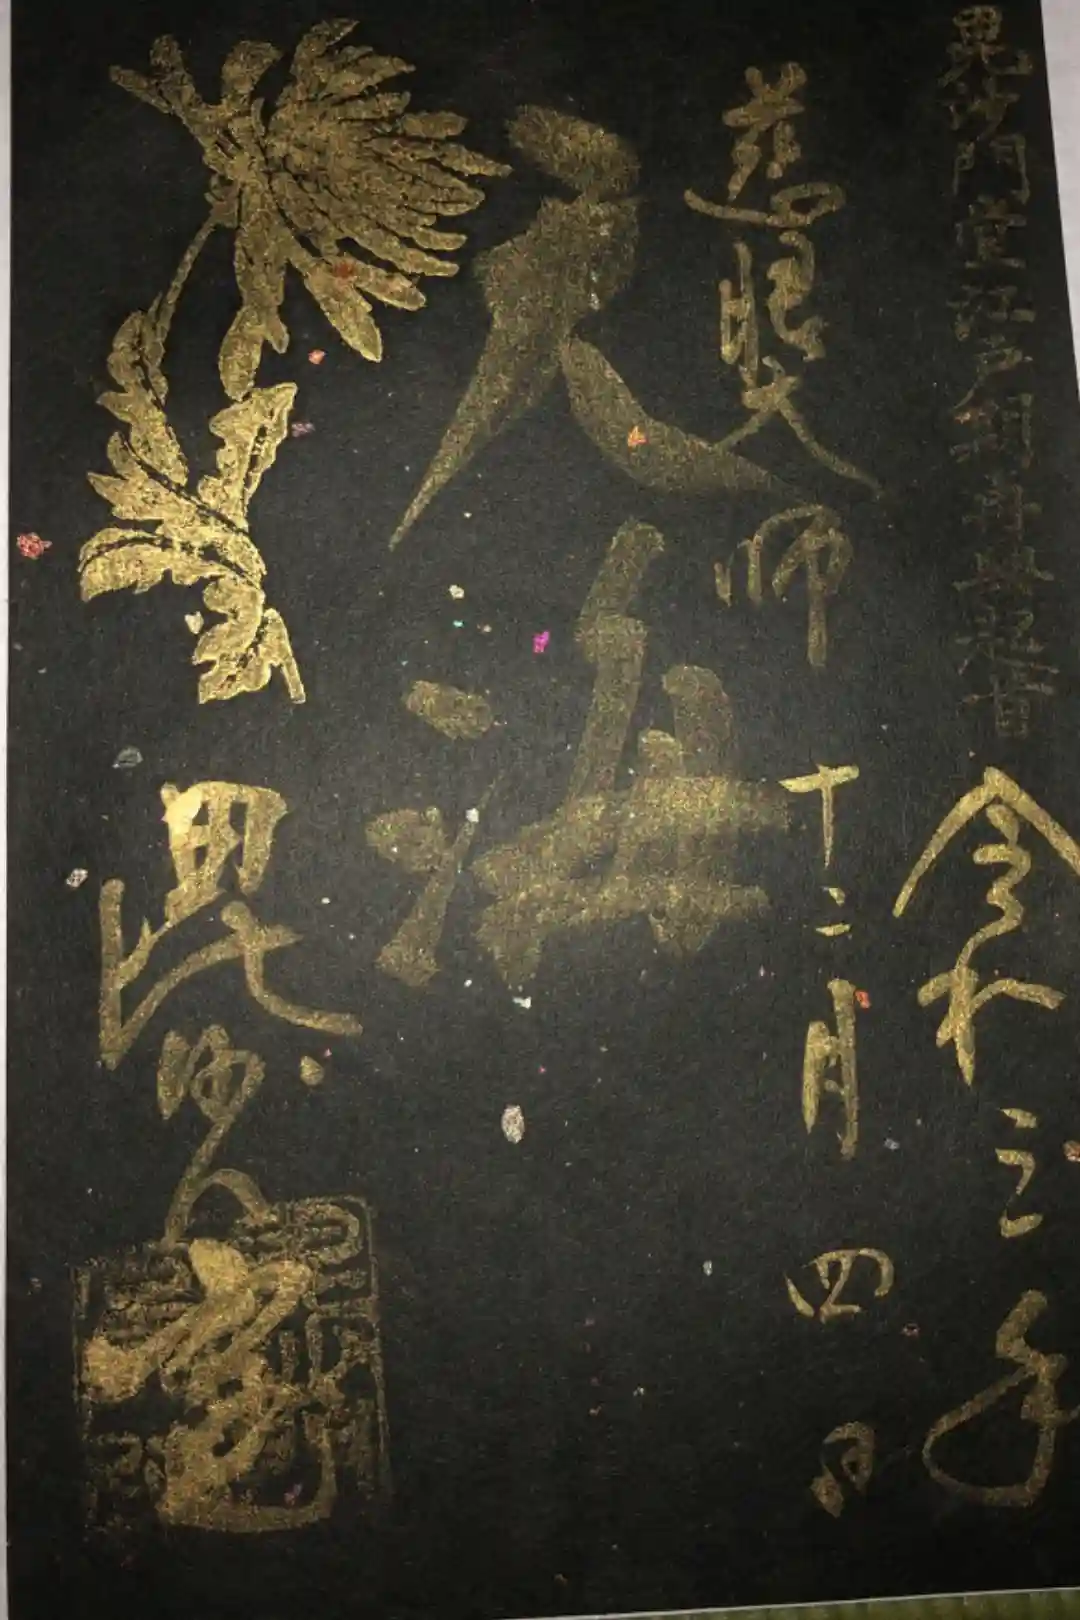 毘沙門堂江戸再興
令和三年
慈眼大師
十二月四日
天海
毘沙門堂